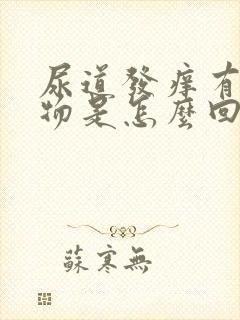 尿道發癢有
物是怎麼回
蘇寒無